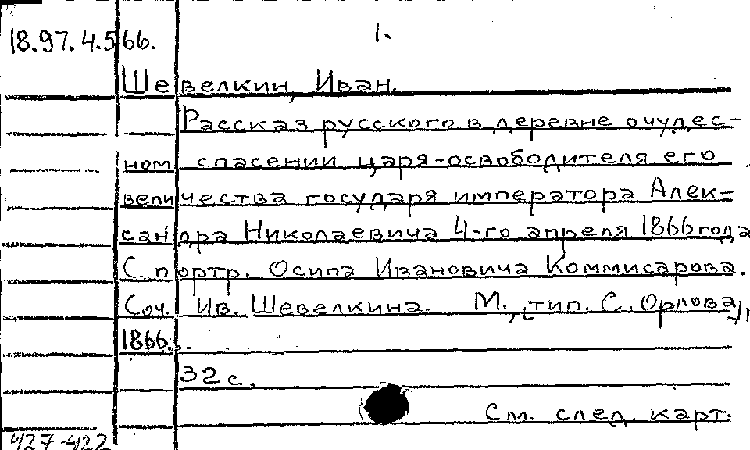 18.97.4.566. 1.
Шевелкин, Иван.
Рассказ русского в деревне о чудес-
ном спасении царя-освободителя его
величества государя императора Алек-
сандра Николаевича 4-го апреля 1866 года
С портр. Осипа Ивановича Коммисарова.
Соч. Ив. Шевелкина. М., тип. С. Орлова,
1866.
32 с.
См. след. карт.
427-422